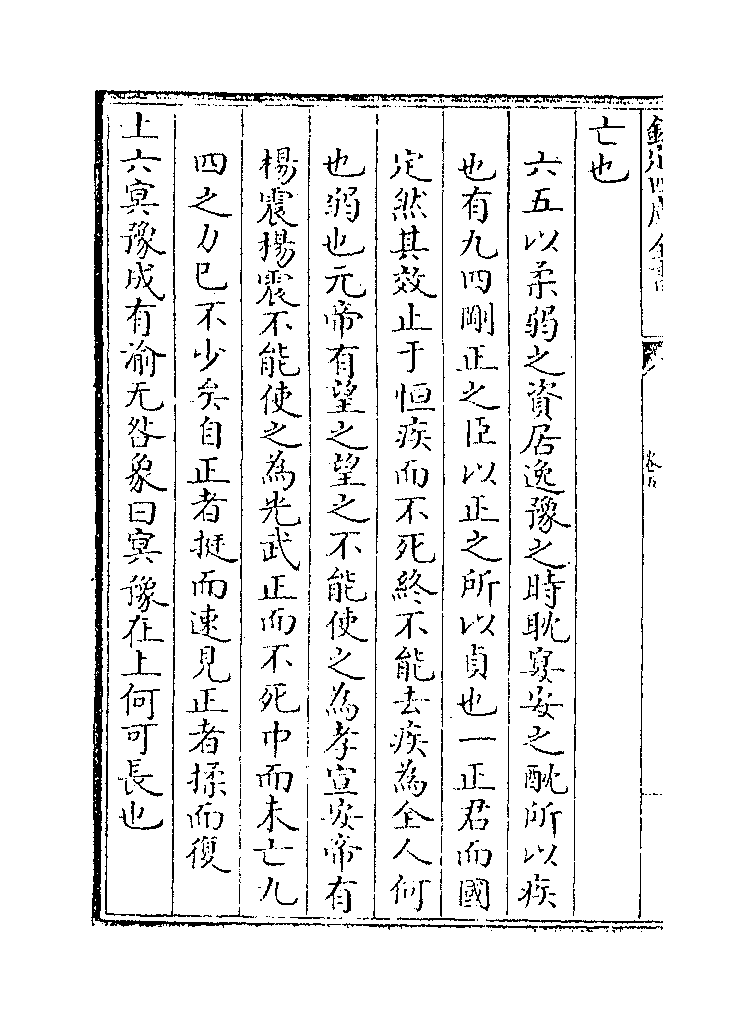 欽定四庫全書
卷五
亡也
六五以柔弱之資居逸豫之時耽宴安之酖所以疾
也有九四剛正之臣以正之所以貞也一正君而國
定然其效止于恒疾而不死終不能去疾為全人何
也弱也元帝有望之望之不能使之為孝宣安帝有
楊震楊震不能使之為光武正而不死中而未亡九
四之力已不少矣自正者挺而速見正者揉而復
上六冥豫成有渝无咎象曰冥豫在上何可長也